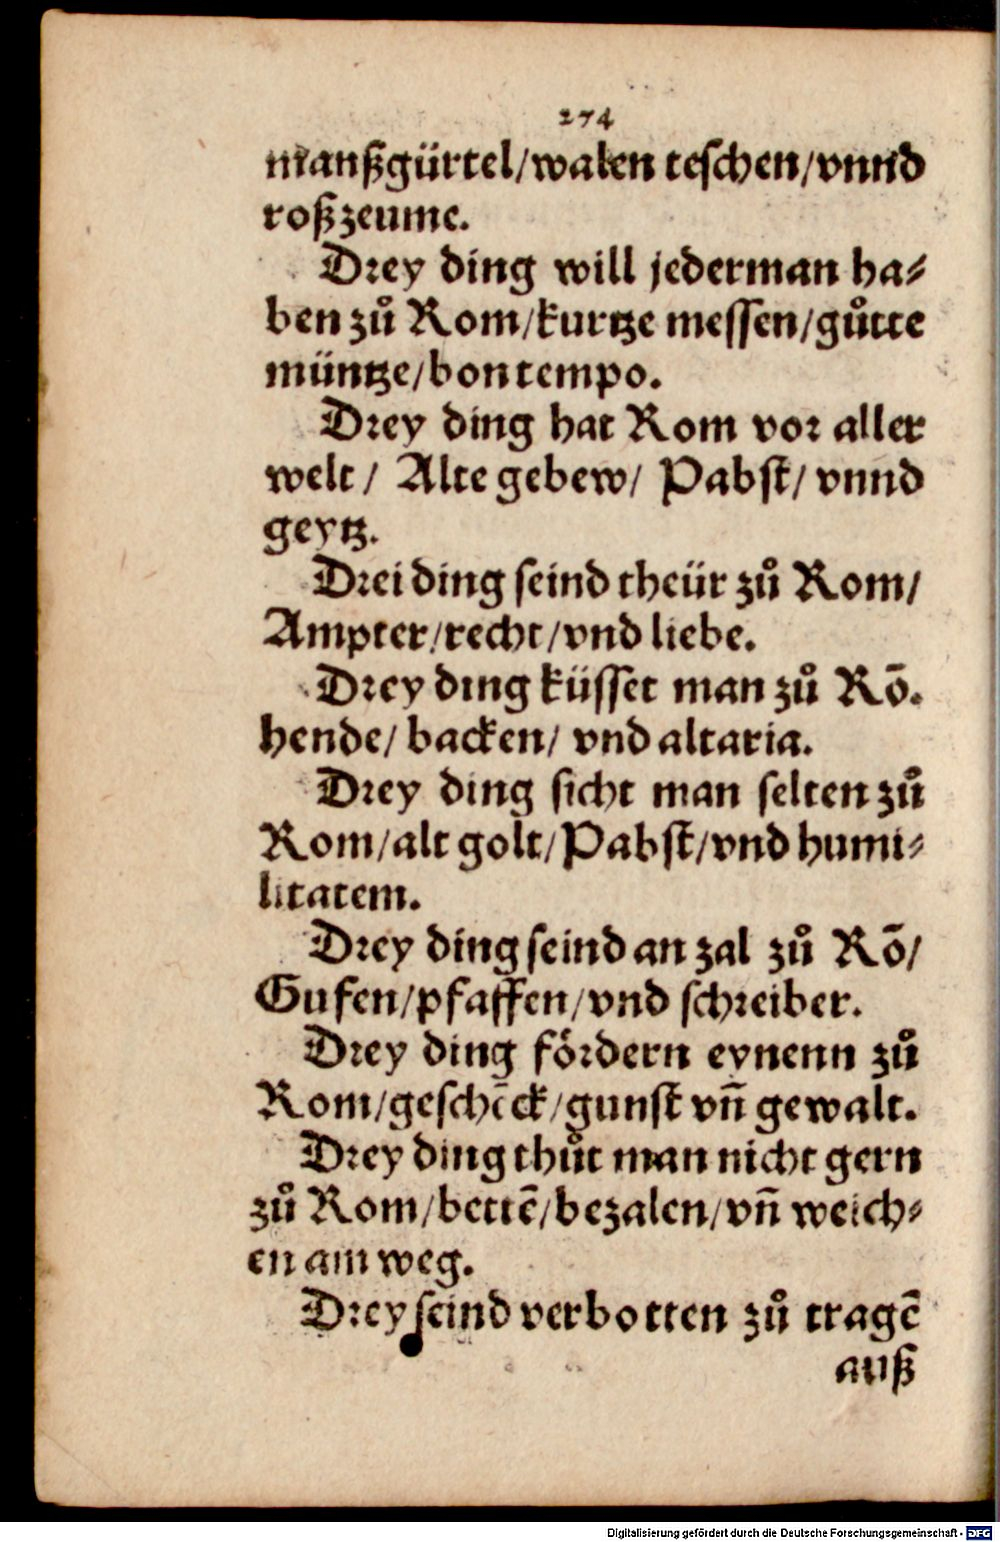 274
manßgürtel/walen teschen/vnnd
roßzeume.
Drey ding will jederman ha⸗
ben zů Rom/kurtze messen/gůtte
müntze/bon tempo.
Drey ding hat Rom vor aller
welt / Alte gebew/ Pabst/ vnnd
geytz.
Drei ding seind theür zů Rom/
Ampter/recht/vnd liebe.
Drey ding küsset man zů Rō.
hende/ backen/ vnd altaria.
Drey ding sicht man selten zů
Rom/alt golt/Pabst/vnd humi⸗
litatem.
Drey ding seind an zal zů Rō/
Gufen/pfaffen/vnd schreiber.
Drey ding fördern eynenn zů
Rom/geschēck/gunst vñ gewalt.
Drey ding thůt man nicht gern
zů Rom/bettē/bezalen/vñ weich⸗
en am weg.
Drey seind verbotten zů tragē
auß
Digitalisierung gefördert durch die Deutsche Forschungsgemeinschaft - DFG